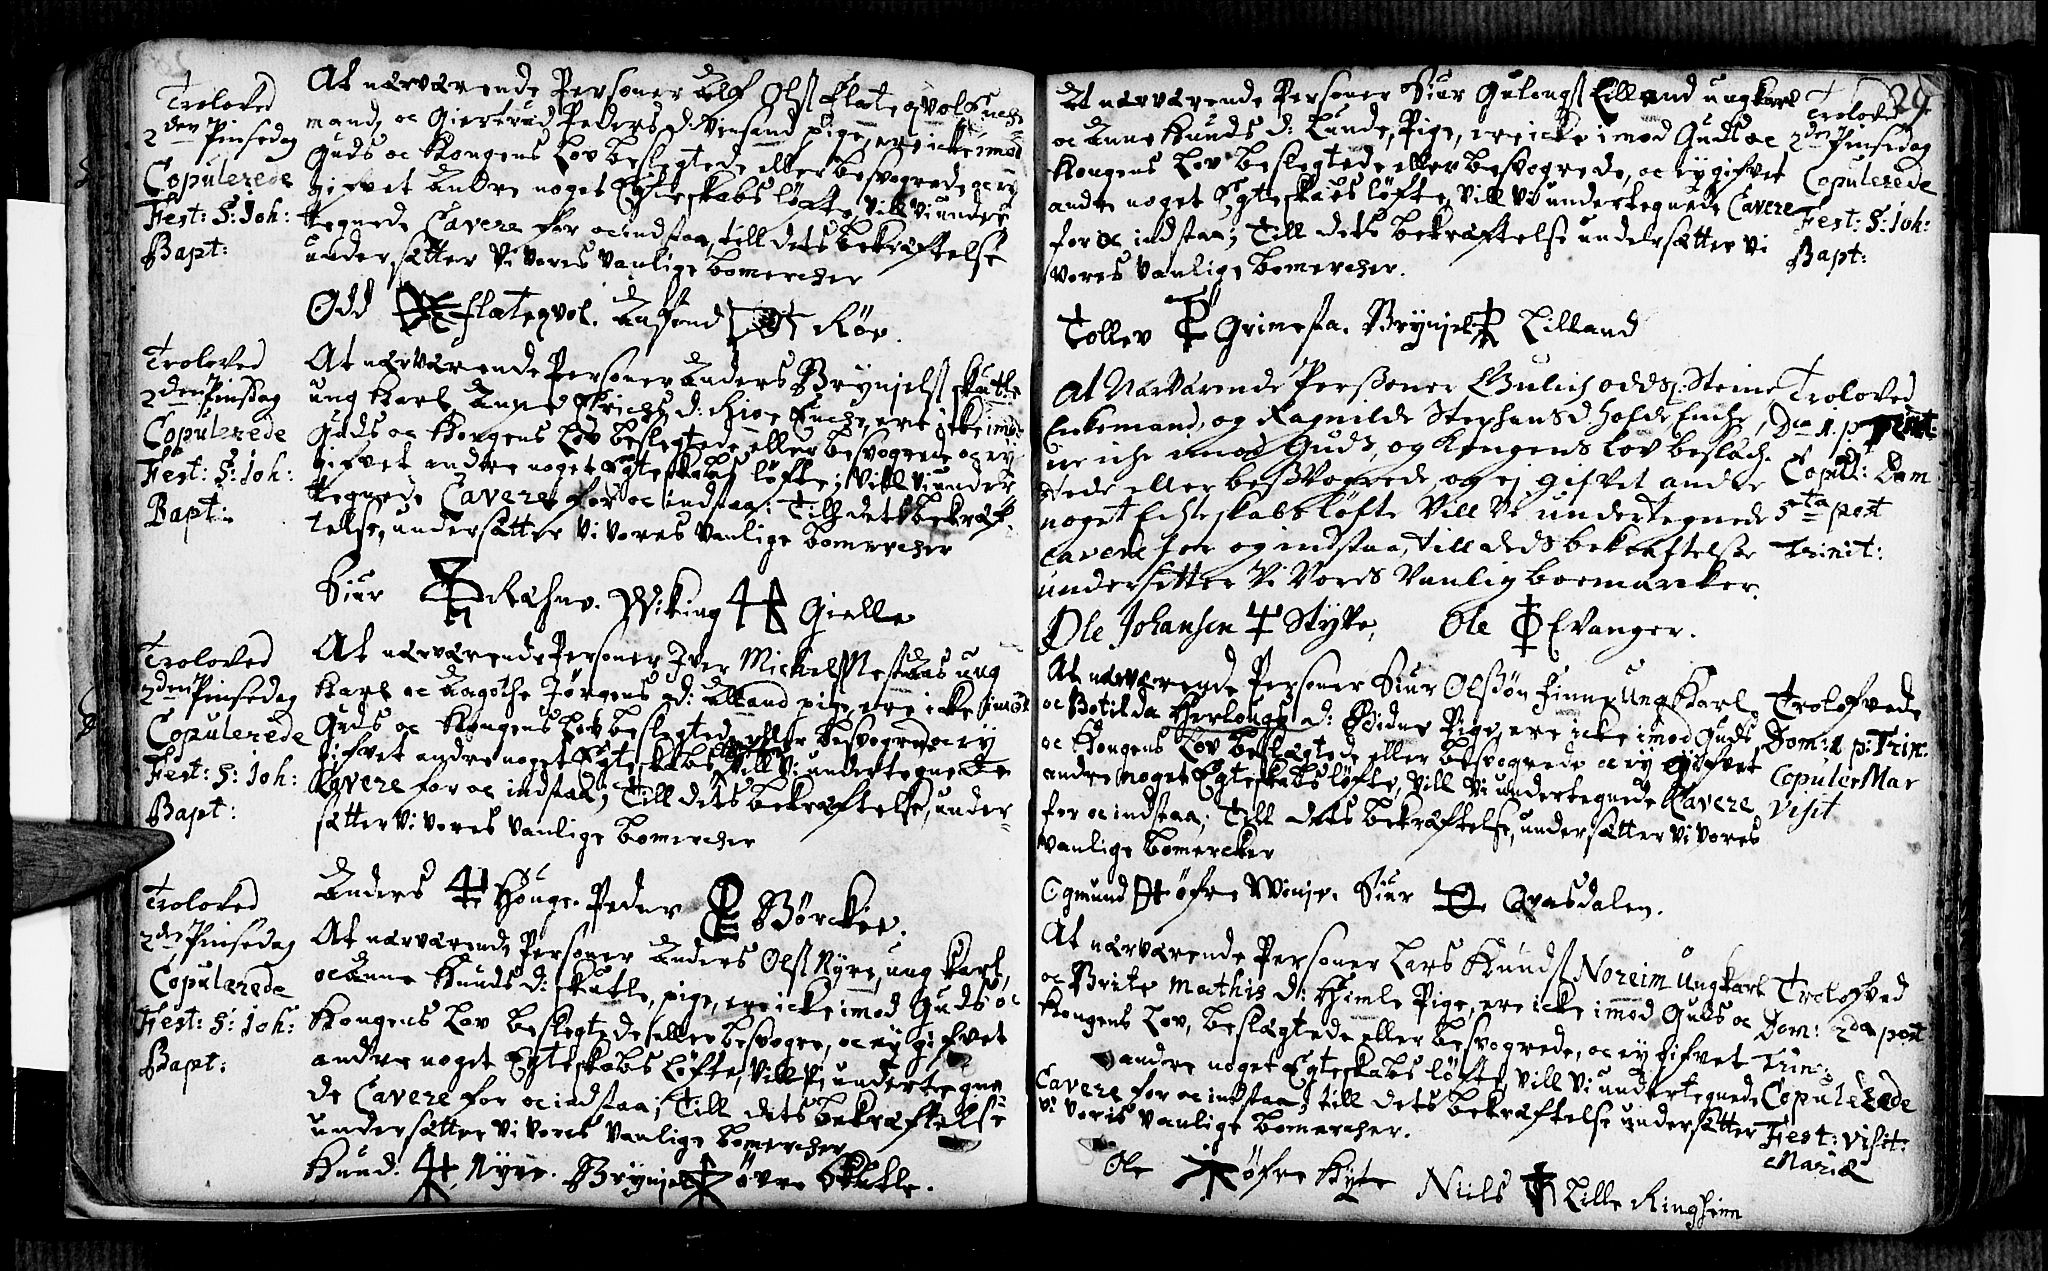 Troloved
2den Pinsedag
Copulerede
Fest: S: Joh:
Bapt:
At nærværende Personer Olf Olss Flateqvol Encke
mand, oc Giertrud Peders d: Vinsand pige, ere icke imod
Guds oc Kongens Lov beslegtede eller besvogrede oc ey
gifvet Andre noget Egteskabs løfte, Vill Vi under
tegnede Cavere for oc indstaa, till dets bekræftelse
undersætter Vi Vores Vanlige bomercher
Odd Flateqvol. Aassend Røe.
Troloved
2den Pinssdag
Copulerede
Fest: S: Joh:
Bapt:
At nærværende Personer Anders Brynjelss Skutle
ung Karl Anne Erichs d: Encke, ere icke imod
Guds oc Kongens Lov beslegtede eller besvogrede oc ey
gifvet andre noget Egteskabs løfte; Vill Vi under
tegnede Cavere for oc indstaa; Till dets bekræf-
telse, undersætter Vi Vores Vanlige bomercher
Siur Ræhne. Wiking Gielle
Troloved
2den Pinsedag
Copulerede
Fest: S: Joh:
Bapt:
At nærværende Personer Iver Michelss Nestaas ung
Karl oc Aagothe Jørgens d: pige, ere icke imod
Guds oc Kongens Lov beslegtede eller besvogrede oc ey
gifvet andre noget Egteskabs løfte Vill Vi undertegnede
Cavere for oc indstaa; Till dets bekræftelse, under-
sætter Vi Vores Vanlige bomercher
Anders Houge. Peder Børckie.
Troloved
2den Pinsedag
Copulerede
Fest: S: Joh:
Bapt:
At nærværende Personer Anders Olss Nyre, ung Karl,
oc Anne Knuds d: Skutle, pige, ere icke imod Guds oc
Kongens Lov beslegtede eller besvogre, oc ey gifvet
andre noget Egteskabs Løfte, Vill Vi undertegne
de Cavere for oc indstaa; Till dets bekræftelse
undersætter Vi Vores Vanlige bomercher
Knud. Nyre. Brynjel øvre Skutle.
29
At nærværende Personer Siur Gulougss Lilland ungkarl
oc Anne Knuds d: Lunde, Pige, ere icke imod Guds oc
Kongens Lov beslegtede eller besvogrede, oc ey gifvet
andre noget Egteskabs løfte, Vill Vi undertegnede Cavere
for oc indstaa; Till dets bekræftelse undersætter Vi
Vores Vanlige bomercher.
Troloved
2den Pinsedag
Copulerede
Fest: S: Joh:
Bapt:
Tollev Grimesta. Brynjel Lilland
At Nærværende Perssoner Gulich odds: Steine
Enkemand, og Ragnilde Stephansd
ere iche imod Guds, og Kongens lov beslæch-
tede eller bessvogrede, og ej gifvet andre
noget Echteskabs løfte Vill Vi undertegnede
cavere for og indstaa, till deds bekræftelse
undersetter Vi Vores Vanlig boemarcker.
Troloved
Dca 1. p Trinit:
Copul: Dom
5ta post
Trinit:
Ole Johansen Styve, Ole Evanger.
At nærverende Personer Siur Olssøn Finne ung Karl
oc Botilda Herlougs d: Pige, ere icke imod Guds
oc Kongens Lov beslægtede eller besvogrede oc ey gifvet
andre noget Egteskabs løfte, Vill Vi undertegnede Cavere
for oc indstaa; Till dets bekræftelse, undersætter Vi Vores
Vanlige bomercker
Trolofvede
Dom: 1 p: Trin:
Copuler Mar
Visit
Ogmund øfre Winje. Siur Qvasdalen.
At nærværende Personer Lars Knudss Noreim Ungkarl
oc Brite Mathis d: Himle Pige, ere icke imod Guds oc
Kongens Lov, beslægtede eller besvogrede, oc ey gifvet
andre noget Egteskabs løfte, Vill Vi undertegnede
Cavere for oc indstaa; till dets bekræftelse undersætter
Vi Voris Vanlige bomercher.
Trolofved
Dom: 2da post
Trin:
Copulerede
Fest: Visit:
Mariæ
Ole øfre Kyte Niels Lille Ringheim